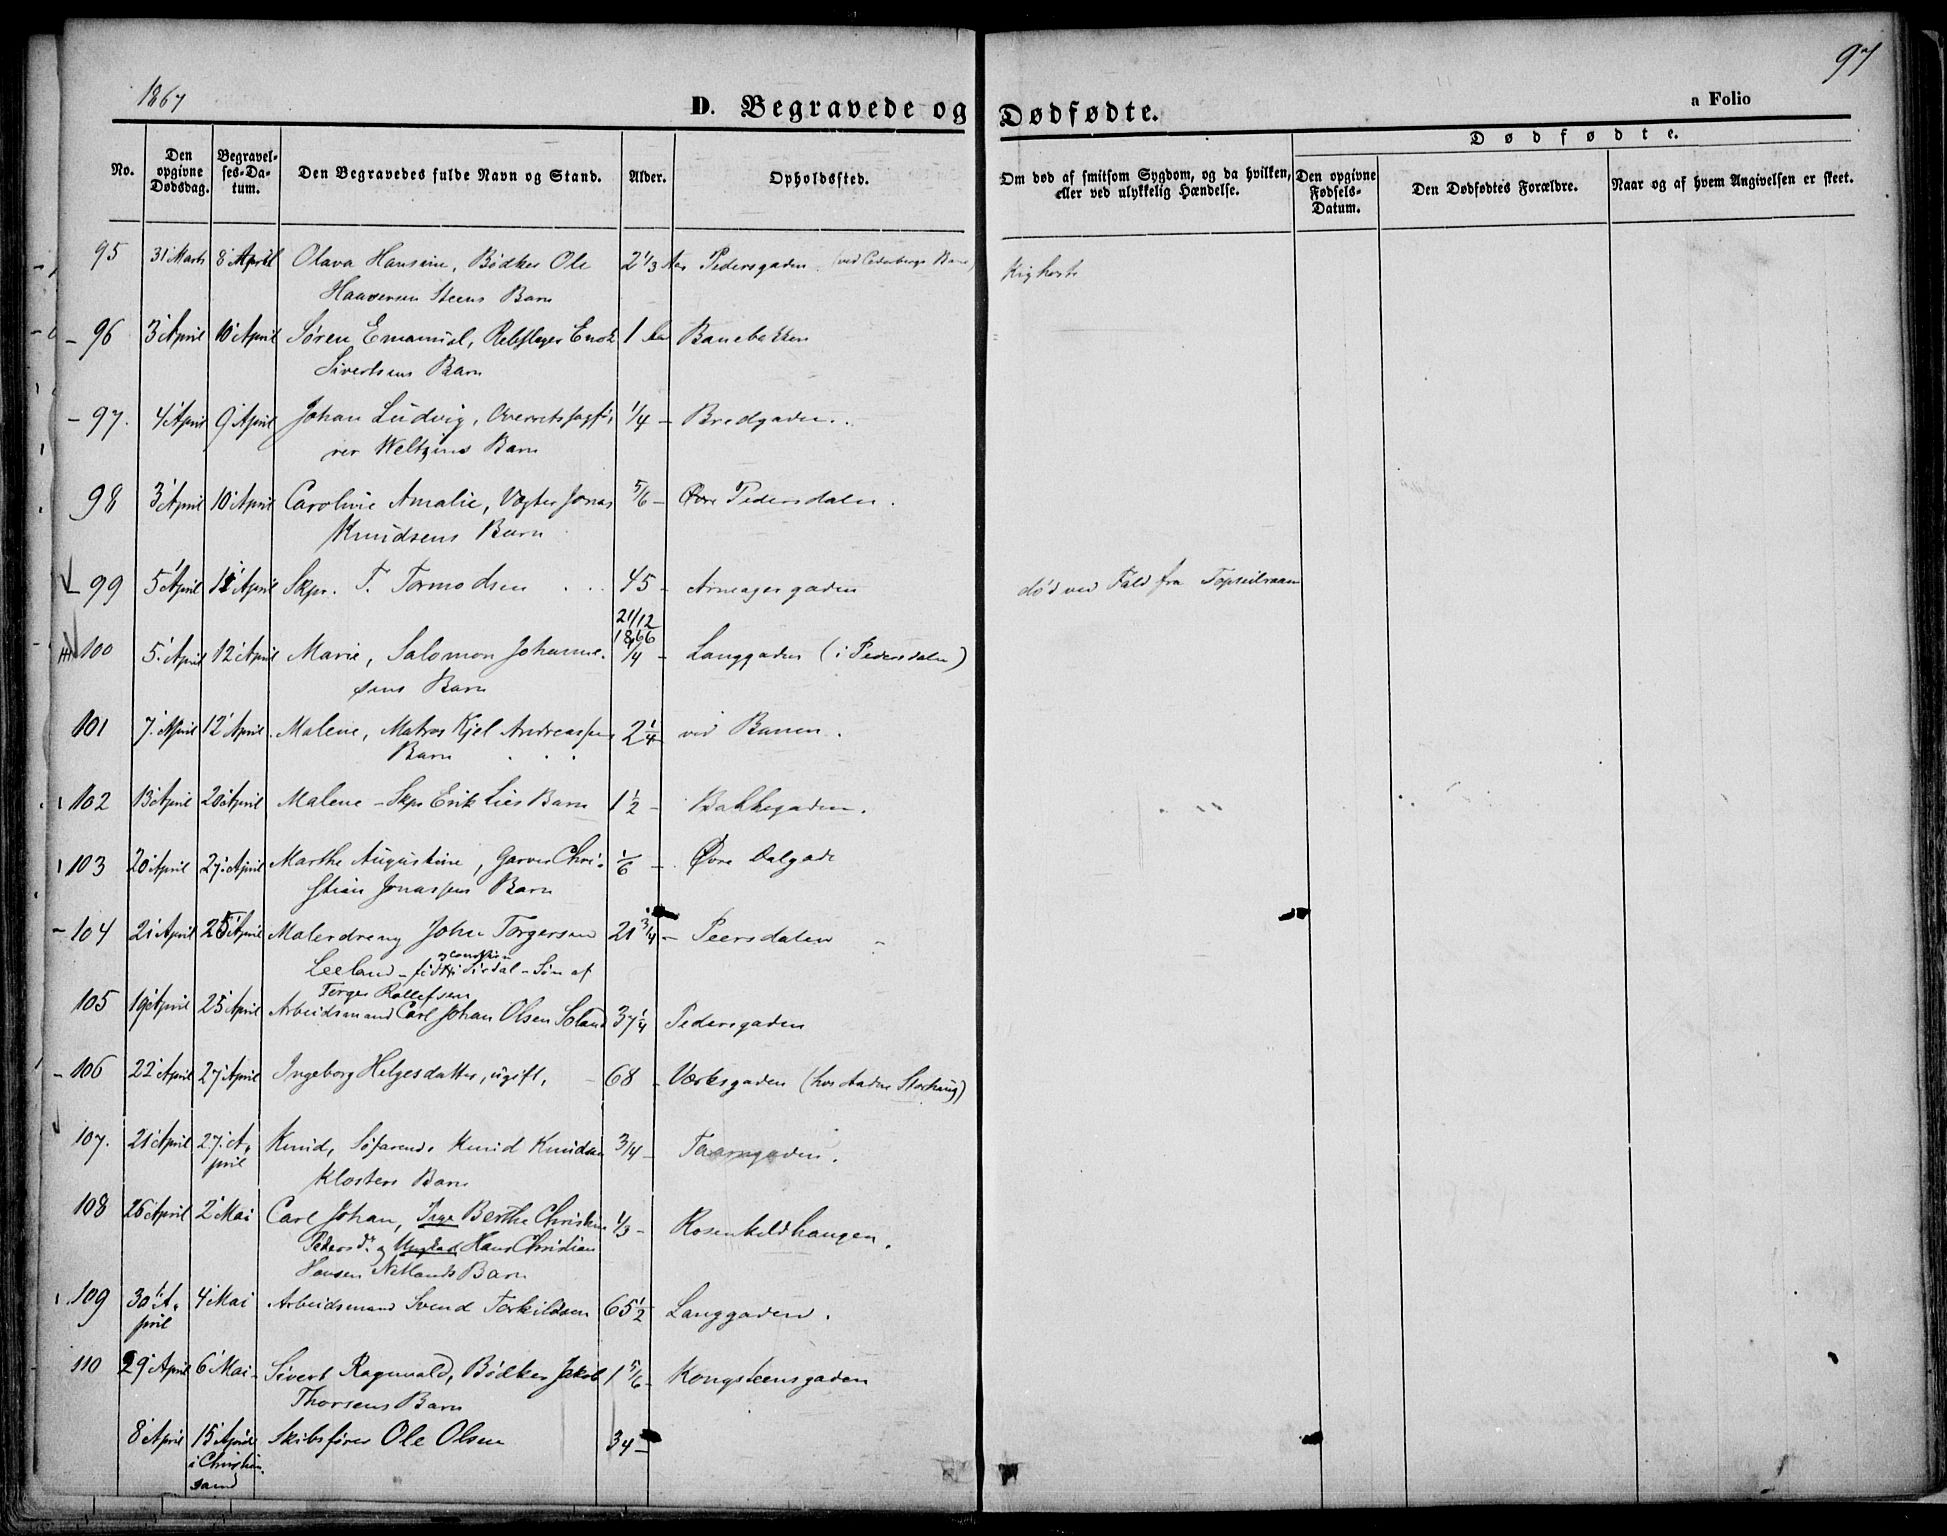 1867
97
D. Begravede og Dødfødte.
a Folio
Dødfødte.
No.
Den opgivne Dødsdag.
Begravelses-Datum.
Den Begravedes fulde Navn og Stand.
Alder.
Opholdssted.
Om død af smitsom Sygdom, og da hvilken, eller ved ulykkelig Hændelse.
Den opgivne Fødsels-Datum.
Den Dødfødtes Forældre.
Naar og af hvem Angivelsen er skeet.
95 31 Marts 8 April Olava Hansine, Bødker Ole 2 1/3 Aar Pedersgaden (ved Banen) Kighoste
Haaversen Steens Barn
96 3 April 10 April Søren Emanuel, Rebslager Enok 1 Aar Banebakken
Sivertsens Barn
97. 4 April 9 April Johan Ludvig, Overretssagfø- 1/4 - Bredgaden.
rer Weltzins Barn
98 3 April 10 April Caroline Amalie, Vægter Jonas 5/6 - Øvre Pedersdalen.
Knudsens Barn
99 5 April 12 April Skpr. T. Tormodsen 45 - Armagergaden død ved Fald fra Topseilraaen
21/12
1866
100 5. April 12 April Marie, Salomon Johanne- 1/4 - Langgaden (i Pedersdalen)
sens Barn
101 7. April 12 April. Malene, Matros Kjel Andreassens 2 1/4 ved Banen.
Barn
102 13 April 20 April Malene - Skpr Erik Lies Barn 1 1/2 - Bakkegaden.
103 20 April 27. April Marthe Augustine, Garver Chri- 1/6 - Øvre Dalgade
stian Jonassens Barn
104 21 April 25 April Malerdreng John Torgersen 21 3/4 - Peersdalen
og confirm
Leeland - født i Sirdal - Søn af
Torger Rollefsen
105 19 April 25 April Arbeidsmand Carl Johan Olsen Soland 37 1/4 Pedersgaden
106 22 April 27 April Ingeborg Helgesdatter, ugift, 68 - Værksgaden (hos Stochaug)
107. 21 April 27. A- Knud, Søfarende Knud Knudsen 3/4 - Taarngaden.
pril
Klosters Barn
108 26 April 2 Mai Carl Johan, Pige Berthe Christine 1/3 - Rosenkildhaugen.
Peders dr. og Ungkarl Hans Christian
Hansen Netlands Barn
109 30 A- 4 Mai Arbeidsmand Svend Torkildsen 65 1/2 Langgaden.
pril
110 29 April 6 Mai - Sivert Ragnvald, Bødker Jakob 1 5/6 - Kongsteensgaden
Thorsens Barn
8 April 15 April Skibsfører Ole Olsen 34 -
i Christian-
sand